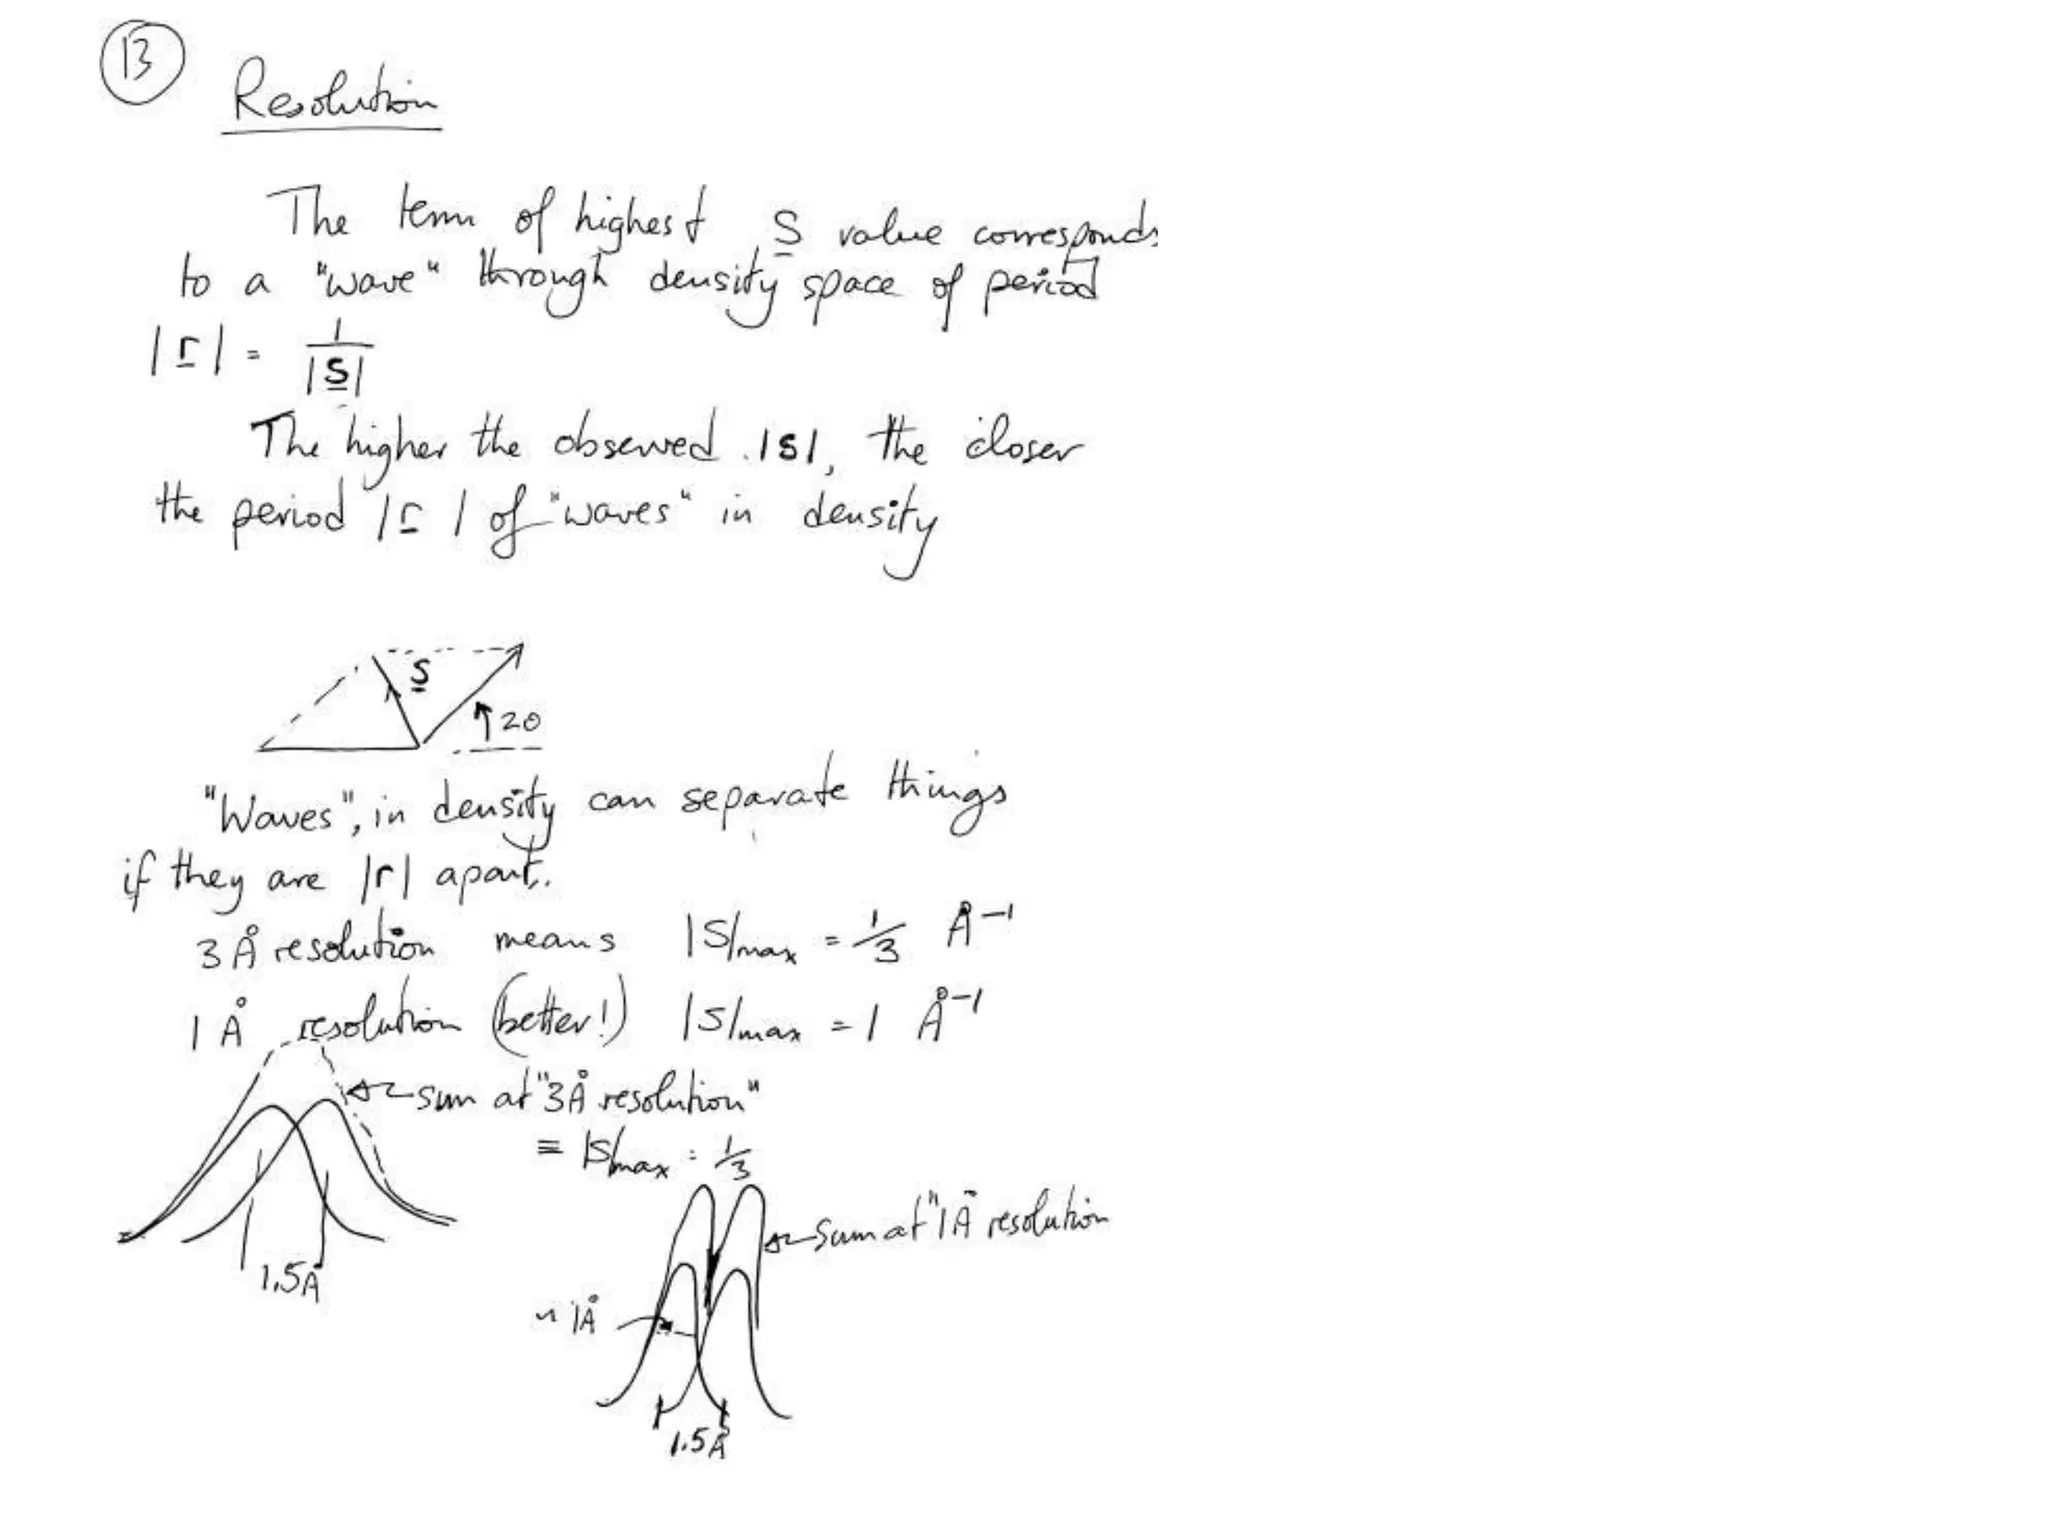 13
Resolution
The term of highest S value corresponds
to a "wave" through density space of period
|r| = 1/|S|
The higher the observed |S|, the closer
the period |r| of "waves" in density
S
2θ
"Waves", in density can separate things
if they are |r| apart.
3 Å resolution means |S|max = 1/3 Å⁻¹
1 Å resolution (better!) |S|max = 1 Å⁻¹
sum at "3Å resolution"
≡ |S|max = 1/3
1.5Å
sum at "1Å resolution
~ 1Å
1.5Å